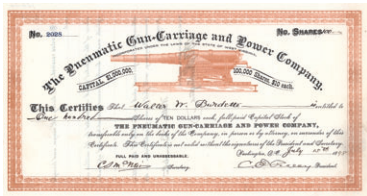 No. 2028
No. Shares 100
The Pneumatic Gun-Carriage and Power Company.
INCORPORATED UNDER THE LAWS OF THE STATE OF WEST VIRGINIA.
CAPITAL, $1,000,000.
100,000 Shares, $10 each.
This Certifies That Walter W. Burdette is entitled to
One hundred Shares of TEN DOLLARS each, full-paid Capital Stock of
THE PNEUMATIC GUN-CARRIAGE AND POWER COMPANY,
transferable only on the books of the Company, in person or by attorney, on surrender of this
Certificate. This Certificate is not valid without the signatures of the President and Secretary.
FULL PAID AND UNASSESSABLE.
Washington, D.C. July
Secretary.
President